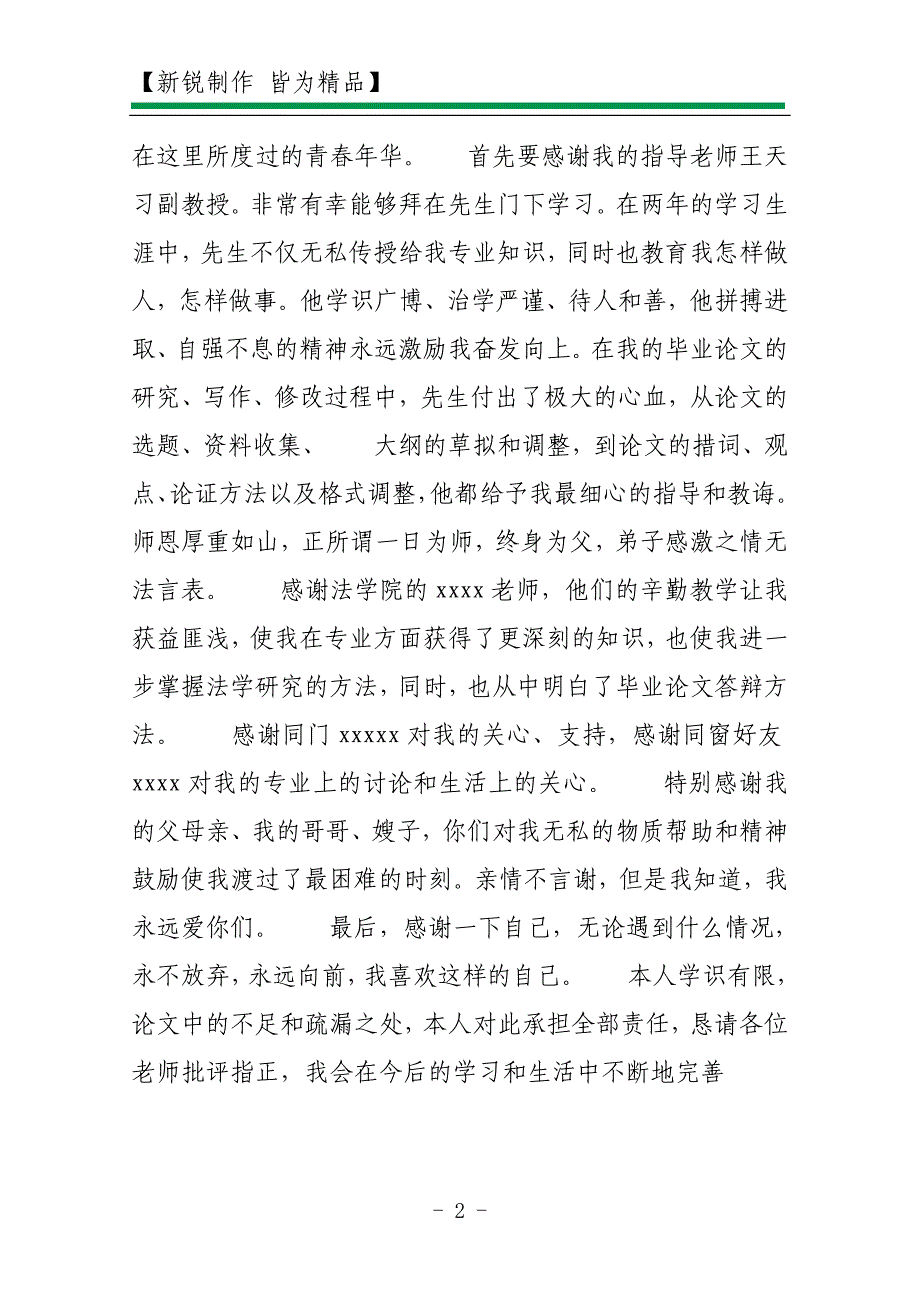 【新锐制作 皆为精品】
在这里所度过的青春年华。 首先要感谢我的指导老师王天
习副教授。非常有幸能够拜在先生门下学习。在两年的学习生
涯中，先生不仅无私传授给我专业知识，同时也教育我怎样做
人，怎样做事。他学识广博、治学严谨、待人和善，他拼搏进
取、自强不息的精神永远激励我奋发向上。在我的毕业论文的
研究、写作、修改过程中，先生付出了极大的心血，从论文的
选题、资料收集、 大纲的草拟和调整，到论文的措词、观
点、论证方法以及格式调整，他都给予我最细心的指导和教诲。
师恩厚重如山，正所谓一日为师，终身为父，弟子感激之情无
法言表。 感谢法学院的 xxxx 老师，他们的辛勤教学让我
获益匪浅，使我在专业方面获得了更深刻的知识，也使我进一
步掌握法学研究的方法，同时，也从中明白了毕业论文答辩方
法。 感谢同门 xxxxx 对我的关心、支持，感谢同窗好友
xxxx 对我的专业上的讨论和生活上的关心。 特别感谢我
的父母亲、我的哥哥、嫂子，你们对我无私的物质帮助和精神
鼓励使我渡过了最困难的时刻。亲情不言谢，但是我知道，我
永远爱你们。 最后，感谢一下自己，无论遇到什么情况，
永不放弃，永远向前，我喜欢这样的自己。 本人学识有限，
论文中的不足和疏漏之处，本人对此承担全部责任，恳请各位
老师批评指正，我会在今后的学习和生活中不断地完善
- 2 -